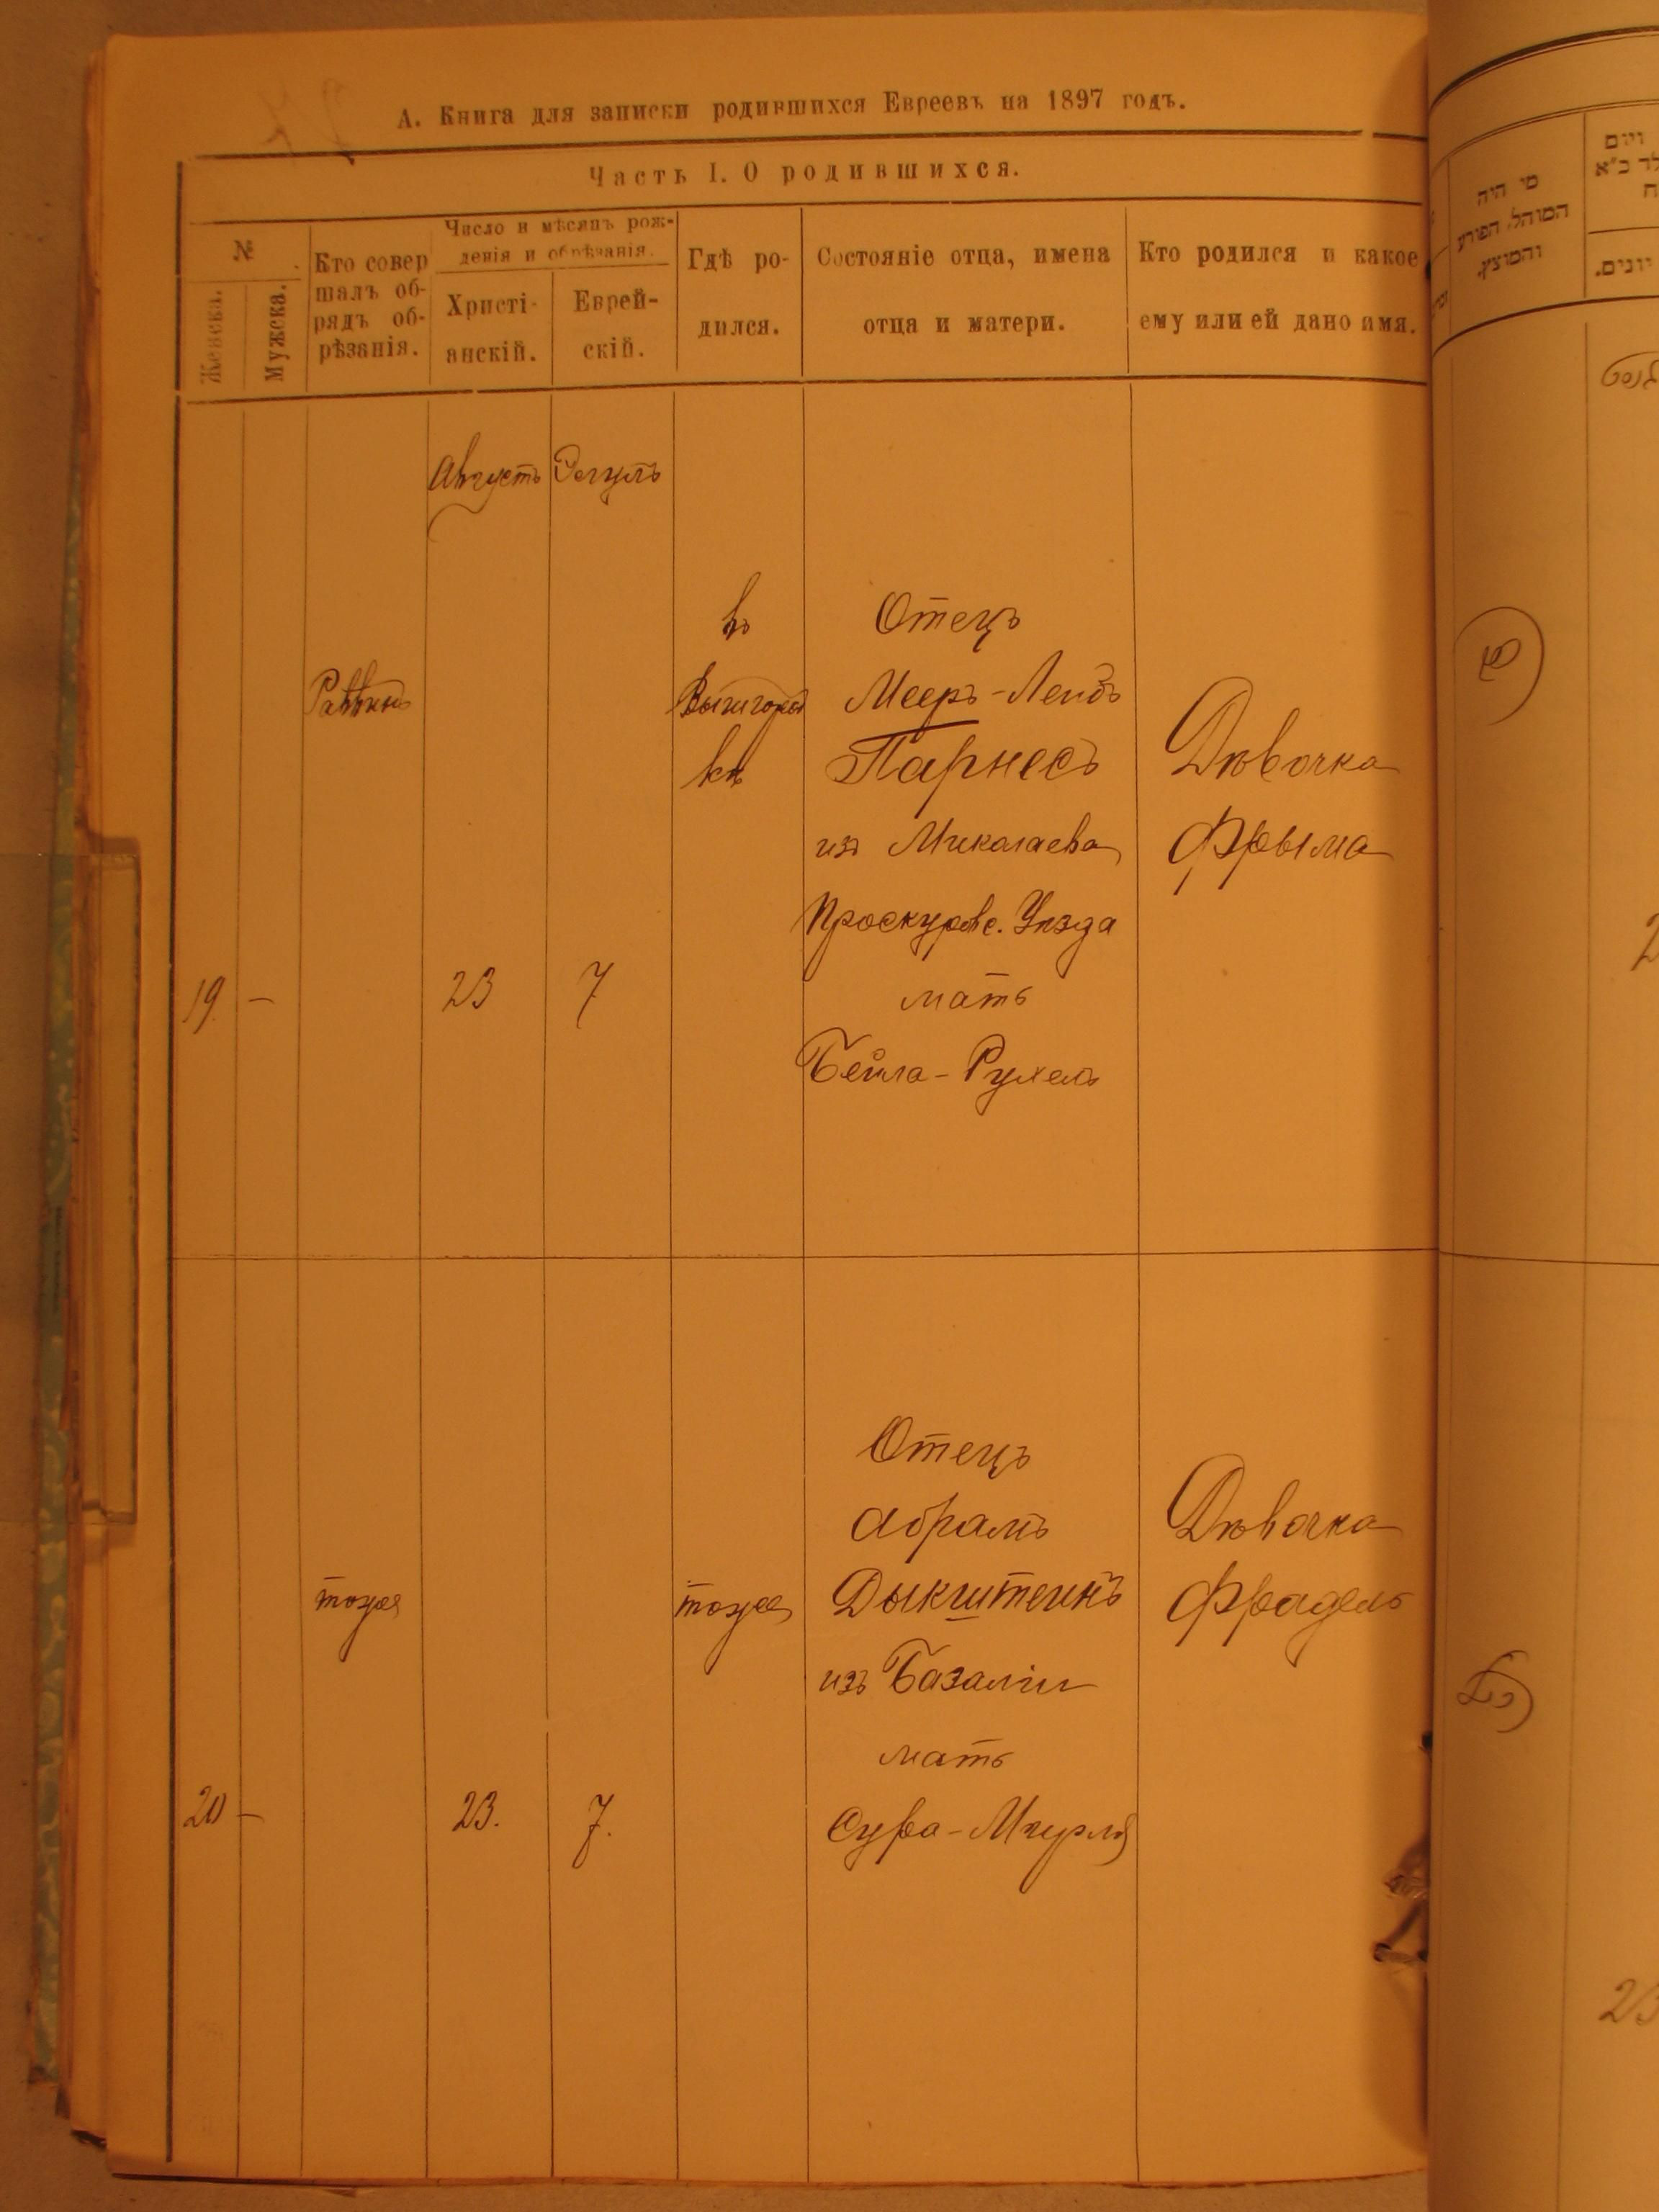 А. Книга для записки родившихся Евреевъ на 1897 годъ.
Часть I. О родившихся.
№
Женска.
Мужска.
Кто совер
шалъ об-
рядъ об-
рѣзанія.
Число и мѣсяцъ рож-
денія и обрѣзанія.
Христі-
анскій.
Еврей-
скій.
Гдѣ ро-
дился.
Состояніе отца, имена
отца и матери.
Кто родился и какое
ему или ей дано имя.
Августъ
Элулъ
19
—
Раввинъ
23
7
въ
Вышгород
кѣ
Отецъ
Мееръ-Лейбъ
Парнесъ
из Миколаева
Проскуровс. Уѣзда
мать
Бейла-Рухель
Дѣвочка
Фрыма
20
—
тоже
23.
7.
тоже
Отецъ
Абрамъ
Дыкштейнъ
изъ Базаліи
мать
Сура-Мирля
Дѣвочка
Фрадель
מי היה
המוהל, הפורע
והמוצץ.
ויום
יונים.